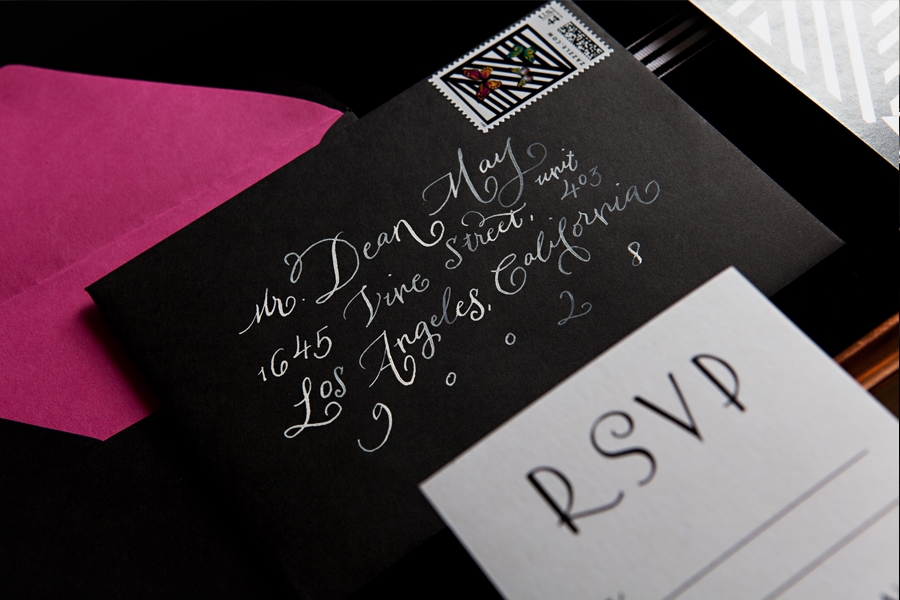 Mr. Dean May
1645 Vine Street, unit 403
Los Angeles, California
9 0 0 2 8
RSVP